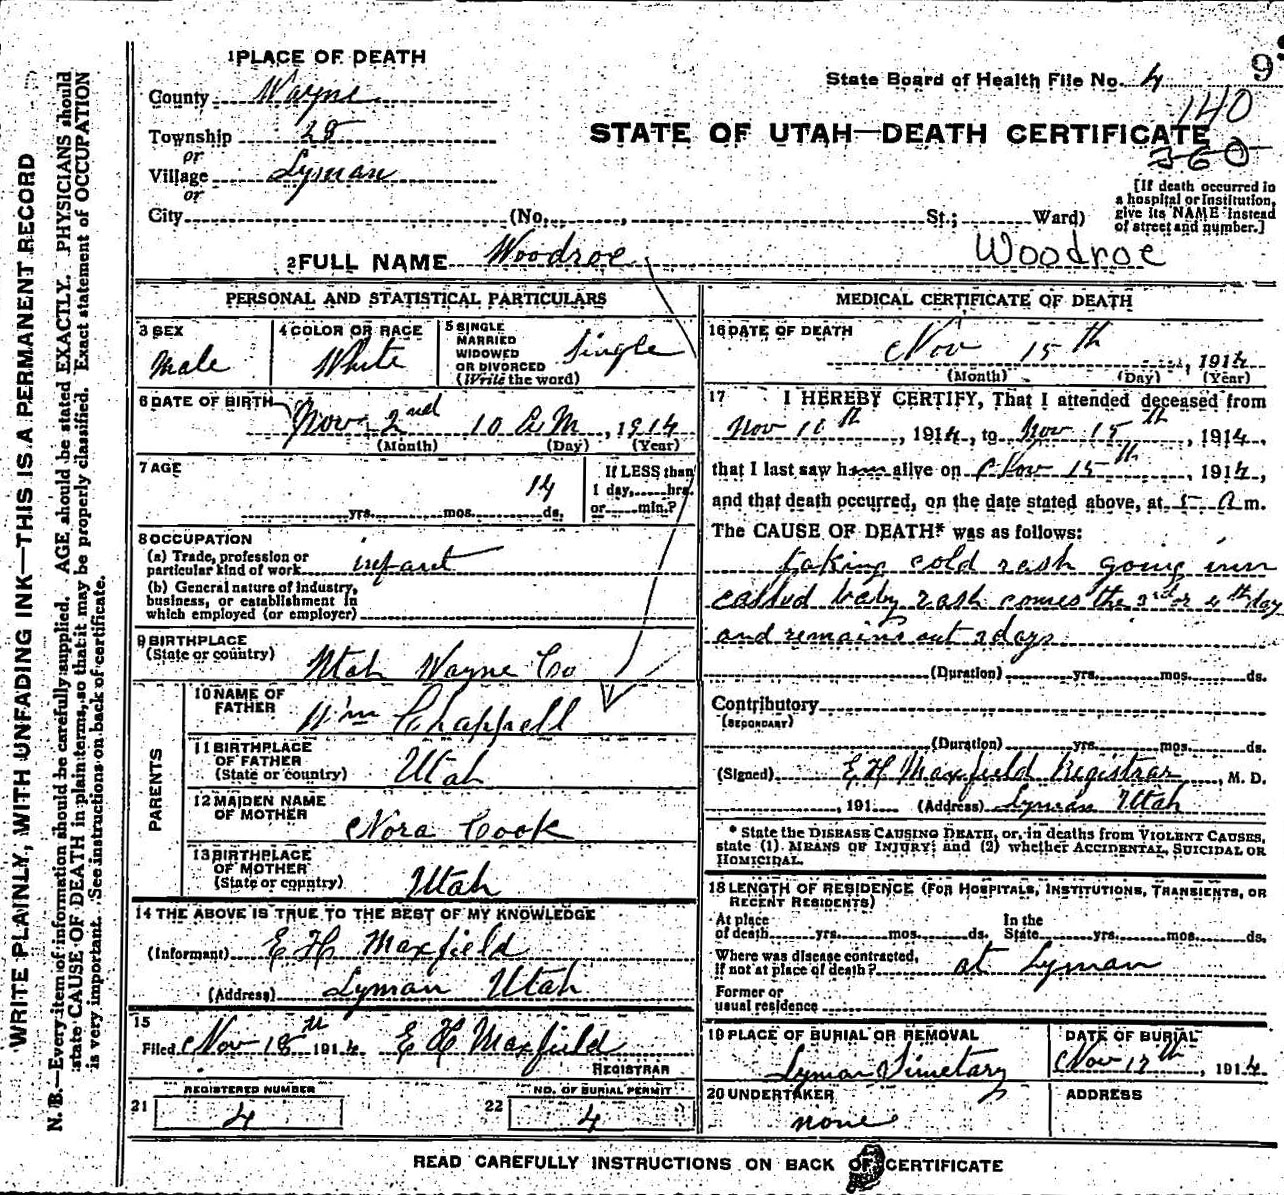 WRITE PLAINLY, WITH UNFADING INK—THIS IS A PERMANENT RECORD
N. B.—Every item of information should be carefully supplied. AGE should be stated EXACTLY. PHYSICIANS should
state CAUSE OF DEATH in plain terms, so that it may be properly classified. Exact statement of OCCUPATION
is very important. See instructions on back of certificate.
9
1 PLACE OF DEATH
State Board of Health File No. 4
140
County Wayne
Township 28
STATE OF UTAH—DEATH CERTIFICATE
360
or
Village Lyman
or
City (No. , St.; Ward)
[If death occurred in
a hospital or institution,
give its NAME instead
of street and number.]
2 FULL NAME Woodroe Woodroe
PERSONAL AND STATISTICAL PARTICULARS
3 SEX
Male
4 COLOR OR RACE
White
5 SINGLE
MARRIED
WIDOWED
OR DIVORCED
(Write the word)
Single
6 DATE OF BIRTH
Nov 2nd 10 A M , 1914
(Month) (Day) (Year)
7 AGE
14
yrs. mos. ds.
If LESS than
1 day, hrs.
or min.?
8 OCCUPATION
(a) Trade, profession or
particular kind of work infant
(b) General nature of industry,
business, or establishment in
which employed (or employer)
9 BIRTHPLACE
(State or country)
Utah Wayne Co
PARENTS
10 NAME OF
FATHER
Wm Chappell
11 BIRTHPLACE
OF FATHER
(State or country)
Utah
12 MAIDEN NAME
OF MOTHER
Nora Cook
13 BIRTHPLACE
OF MOTHER
(State or country)
Utah
14 THE ABOVE IS TRUE TO THE BEST OF MY KNOWLEDGE
(Informant) E H Maxfield
(Address) Lyman Utah
15
Filed Nov 18th 1914 E H Maxfield
REGISTRAR
REGISTERED NUMBER
21 4
NO. OF BURIAL PERMIT
22 4
MEDICAL CERTIFICATE OF DEATH
16 DATE OF DEATH
Nov 15th , 1914
(Month) (Day) (Year)
17 I HEREBY CERTIFY, That I attended deceased from
Nov 11th , 1914, to Nov 15th , 1914,
that I last saw h alive on Nov 15th , 1914,
and that death occurred, on the date stated above, at 5 A m.
The CAUSE OF DEATH* was as follows:
taking cold rash going inn
called baby rash comes the 3rd or 4th day
and remains out 2 days
(Duration) yrs. mos. ds.
Contributory
(SECONDARY)
(Duration) yrs. mos. ds.
(Signed) E H Maxfield Registrar , M. D.
, 191 (Address) Lyman Utah
* State the DISEASE CAUSING DEATH, or, in deaths from VIOLENT CAUSES,
state (1) MEANS OF INJURY; and (2) whether ACCIDENTAL, SUICIDAL OR
HOMICIDAL.
18 LENGTH OF RESIDENCE (FOR HOSPITALS, INSTITUTIONS, TRANSIENTS, OR
RECENT RESIDENTS)
At place
of death yrs. mos. ds.
In the
State yrs. mos. ds.
Where was disease contracted,
if not at place of death? at Lyman
Former or
usual residence
19 PLACE OF BURIAL OR REMOVAL
Lyman Simetary
DATE OF BURIAL
Nov 17th , 1914
20 UNDERTAKER
none
ADDRESS
READ CAREFULLY INSTRUCTIONS ON BACK OF CERTIFICATE